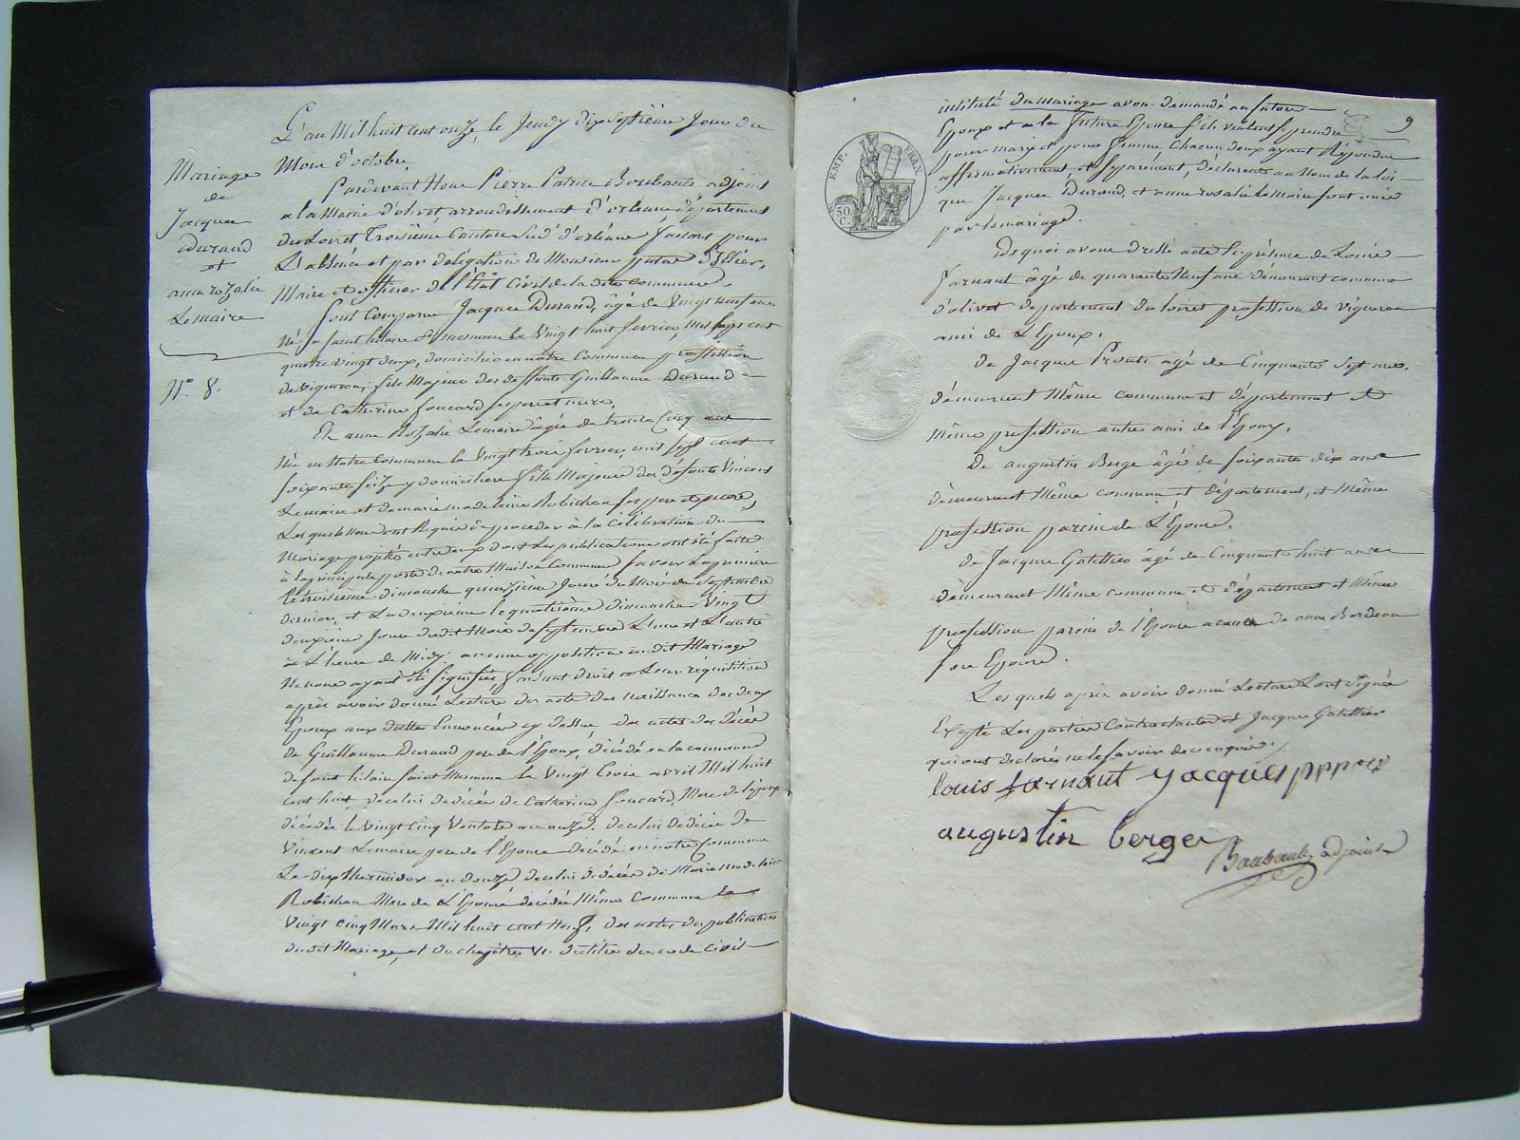 L'an Mil huit cent onze, le Jeudy dix septième Jour du
Mois d'octobre
Mariage
de
Jacques
Durand
et
anne rozalie
Lemaire
N.° 8.
Pardevant Nous Pierre Patrice Boubault adjoint
a la Mairie d'olivet arrondissement d'orleans département
du Loiret Troisième Canton Sud d'orléans faisant pour
L'absence et par délégation de Monsieur
Maire et officier de l'État Civil de la dite Commune.
Sont Comparus Jacques Durand, âgé de Vingt neuf ans
Né a Saint hilaire St mesmin le Vingt huit fevrier, mil sept cent
quatre vingt deux, domicilié en notre Commune profession
de vigneron, fils Majeur des deffunts Guillaume Durand
et de Catherine foucard ses pere et mere,
Et anne Rozalie Lemaire âgée de trente Cinq ans
Née en Notre Commune le Vingt trois fevrier, mil sept cent
soixante seize y domiciliée fille Majeure des défunts Vincent
Lemaire et de marie madeleine Robichon ses pere et mere,
Lesquels Nous ont Requis de proceder à la Célébration du
Mariage projetté entre eux dont Les publications ont été faites
à la principale porte de notre Maison Commune savoir La premiere
le troisieme dimanche quinzième Jour du Mois de Septembre
dernier, et La deuxième le quatrième dimanche Vingt
deuxième Jour du dit Mois de septembre L'une et L'autre
à L'heure de Midy aucune opposition au dit Mariage
Ne nous ayant été signifiée, faisant droit a Leur réquisition
après avoir donné Lecture des acte des Naissance des deux
Epoux aux dattes Enoncées cy dessus des actes des décès
de Guillaume Durand pere de l'Epoux, décédé en la commune
de saint hilaire saint Mesmin le Vingt Trois avril Mil huit
cent huit de celui de décès de Catherine foucard, Mere de l'époux
décédée le vingt cinq Ventose an onze. de celui de décès de
Vincent Lemaire pere de l'Epouse décédé en notre Commune
Le dix thermidor an douze de celui de décès de Marie madeleine
Robichon Mere de L'Epouse décédée Même Commune le
Vingt cinq Mars Mil huit cent Neuf, des actes des publications
du dit Mariage, et du chapitre VI. du titre du code Civil
9
EMP. FRAN.
50 C.
intitulé du mariage avons demandé au futur
Epoux et a la future Epouse s'ils veulent se prendre
pour mary et pour femme Chacun deux ayant Répondu
affirmativement, et séparément, déclarons au Nom de la loi
que Jacques Durand, et anne rosalie Lemaire sont unis
par le mariage.
De quoi avons dressé acte En présence de Louis
Farnault âgé de quarante Neuf ans demeurant commune
d'olivet departement du loiret profession de vigneron
ami de L'Epoux.
de Jacques agé de Cinquante sept ans.
démeurant Même commune et département et
Même profession autre ami de l'Epoux,
De augustin Berge âgé de soixante dix ans
démeurant Même commune et département, et Même
profession parein de L'Epouse.
de Jacques Gatellier âgé de Cinquante huit ans
démeurant Même commune et département et Même
profession parein de l'Epouse a cause de anne Bordeau
son Epouse.
Les quels après avoir donné Lecture L'ont signée
Excepté Les parties Contractantes et Jacques Gatellier
qui ont declarés ne le savoir de ce enquis.
louis farnault Jacques
augustin berge
Boubault adjoint